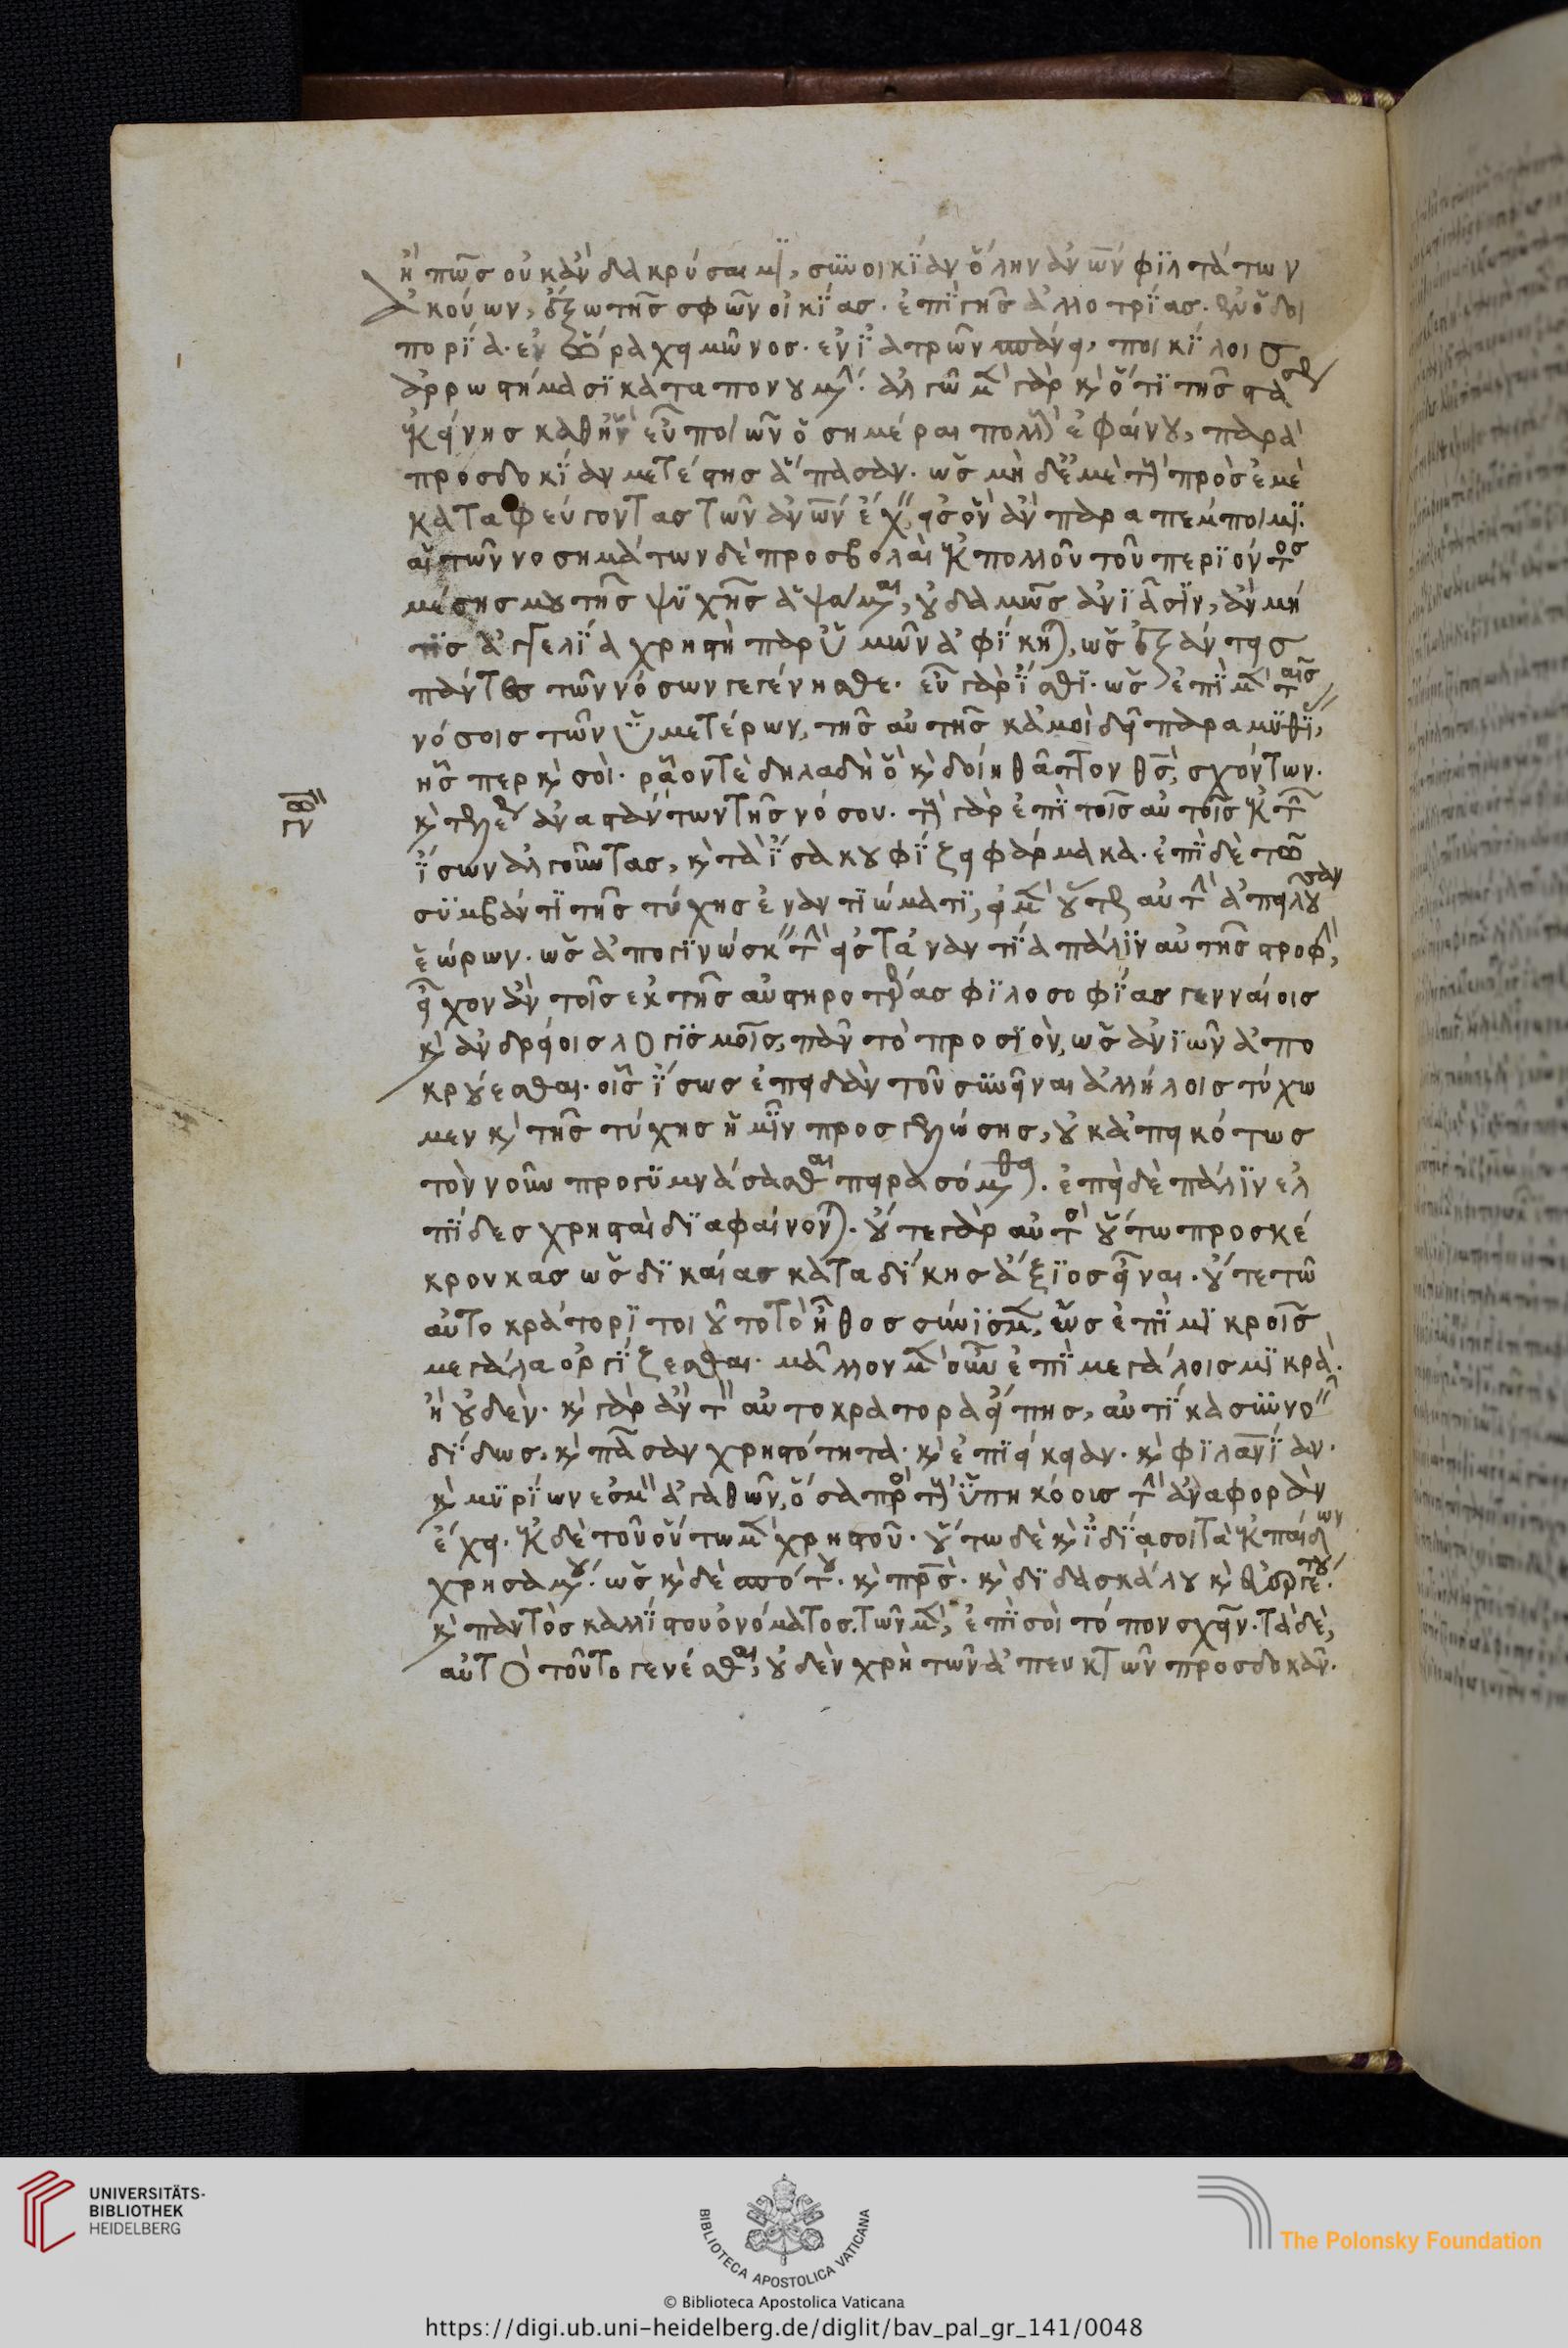 ἢ πῶς οὐκ ἂν δακρύσαιμι, συνοικίαν ὅλην ἀνῶν φιλτάτων
ἀκούων, ἔξω τῆς σφῶν οἰκίας. ἐπὶ γῆς ἀλλοτρίας. ἐν ὁδοι
πορία. ἐν ὥρα χειμῶνος. ἐν ἰατρῶν σπάνει, ποικίλοις
ἀρρωστήμασι καταπονουμένην. ἀλγῶ μὲν γὰρ καὶ ὅτι τῆς στα
ἐκείνης καθ' ἣν εὖ ποιῶν ὁσημέραι πολλοὺς ἐφαίνου, παρὰ
προσδοκίαν μετέστης ἅπασαν. ὡς μηδέ με τοὺς πρὸς ἐμὲ
καταφεύγοντας τῶν ἀνῶν ἔχειν εἰς ὃν ἂν παραπέμποιμι.
αἱ τῶν νοσημάτων δὲ προσβολαὶ ἐκ πολλοῦ τοῦ περιόντος
μέσης μου τῆς ψυχῆς ἁψάμεναι, οὐδαμῶς ἀνιᾶσιν, ἂν μή
τις ἀγγελία χρηστὴ παρ' ὑμῶν ἀφίκηται, ὡς ἐξάντεις
πάντες τῶν νόσων γεγένησθε. εὖ γὰρ ἴσθι. ὡς ἐπὶ μὲν ταῖς
νόσοις τῶν ὑμετέρων, τῆς αὐτῆς κἀμοὶ δεῖ παραμυθίας,
ἧσπερ καὶ σοί. ῥᾷον τὲ δηλαδὴ ὃ καὶ δοίη θᾶττον θς, σχόντων.
ἀναστάντων τῆς νόσου. τοὺς γὰρ ἐπὶ τοῖς αὐτοῖς ἐκ τῶν
ἴσων ἀλγοῦντας, καὶ τὰ ἴσα κουφίζει φάρμακα. ἐπὶ δὲ τῷ
συμβάντι τῆς τύχης ἐναντιώματι, εἰ μὲν οὕτως αὐτὴν ἀπειλοῦσαν
ἑώρων. ὡς ἀπογινώσκειν τὴν εἰς τἀναντία πάλιν αὐτῆς στροφήν,
εἶχον ἂν τοῖς ἐκ τῆς αὐστηροτέρας φιλοσοφίας γενναίοις
καὶ ἀνδρείοις λογισμοῖς, πᾶν τὸ προσιὸν, ὡς ἀνιῶν ἀπο
κρούεσθαι. οἷς ἴσως ἐπειδὰν τοῦ συνεῖναι ἀλλήλοις τύχω
μεν καὶ τῆς τύχης ἡμῖν προσγελώσης, οὐκ ἀπεικότως
τὸν νοῦν προγυμνάσασθαι πειρασόμεθα. ἐπεὶ δὲ πάλιν ἐλ
πίδες χρησταὶ διαφαίνονται. οὔτε γὰρ αὐτὸς οὕτω προσκέ
κρουκας ὡς δικαίας καταδίκης ἄξιος εἶναι. οὔτε τῶ
αὐτοκράτορι τοιοῦτο τὸ ἦθος σύνισμεν, ὡς ἐπὶ μικροῖς
μεγάλα ὀργίζεσθαι. μᾶλλον μὲν οὖν ἐπὶ μεγάλοις μικρὰ.
ἢ οὐδὲν. καὶ γὰρ ἂν τὸν αὐτοκράτορα εἴπης, αὐτίκα συννο
δίδως. καὶ πᾶσαν χρηστότητα. καὶ ἐπιείκειαν. καὶ φιλανίαν.
καὶ μυρίων ἑσμὸν ἀγαθῶν, ὅσα πρὸς τοὺς ὑπηκόους τὴν ἀναφορὰν
ἔχει. ἐκ δὲ τοῦ οὕτω μὲν χρηστοῦ. οὕτω δὲ καὶ ἰδίας σοι τὰ ἐκ παίδων
χρησαμένου. ὡς καὶ δὲ τούτου. καὶ πρς. καὶ διδασκάλου καὶ εὐεργέτου.
καὶ παντὸς καλλίστου ὀνόματος. τῶν μὲν, ἐπὶ σοὶ τόπον σχεῖν. τὰ δὲ,
αὐτὸ τοῦτο γενέσθαι, οὐδὲν χρὴ τῶν ἀπευκτῶν προσδοκᾶν.
UNIVERSITÄTS-
BIBLIOTHEK
HEIDELBERG
BIBLIOTECA APOSTOLICA VATICANA
The Polonsky Foundation
© Biblioteca Apostolica Vaticana
https://digi.ub.uni-heidelberg.de/diglit/bav_pal_gr_141/0048